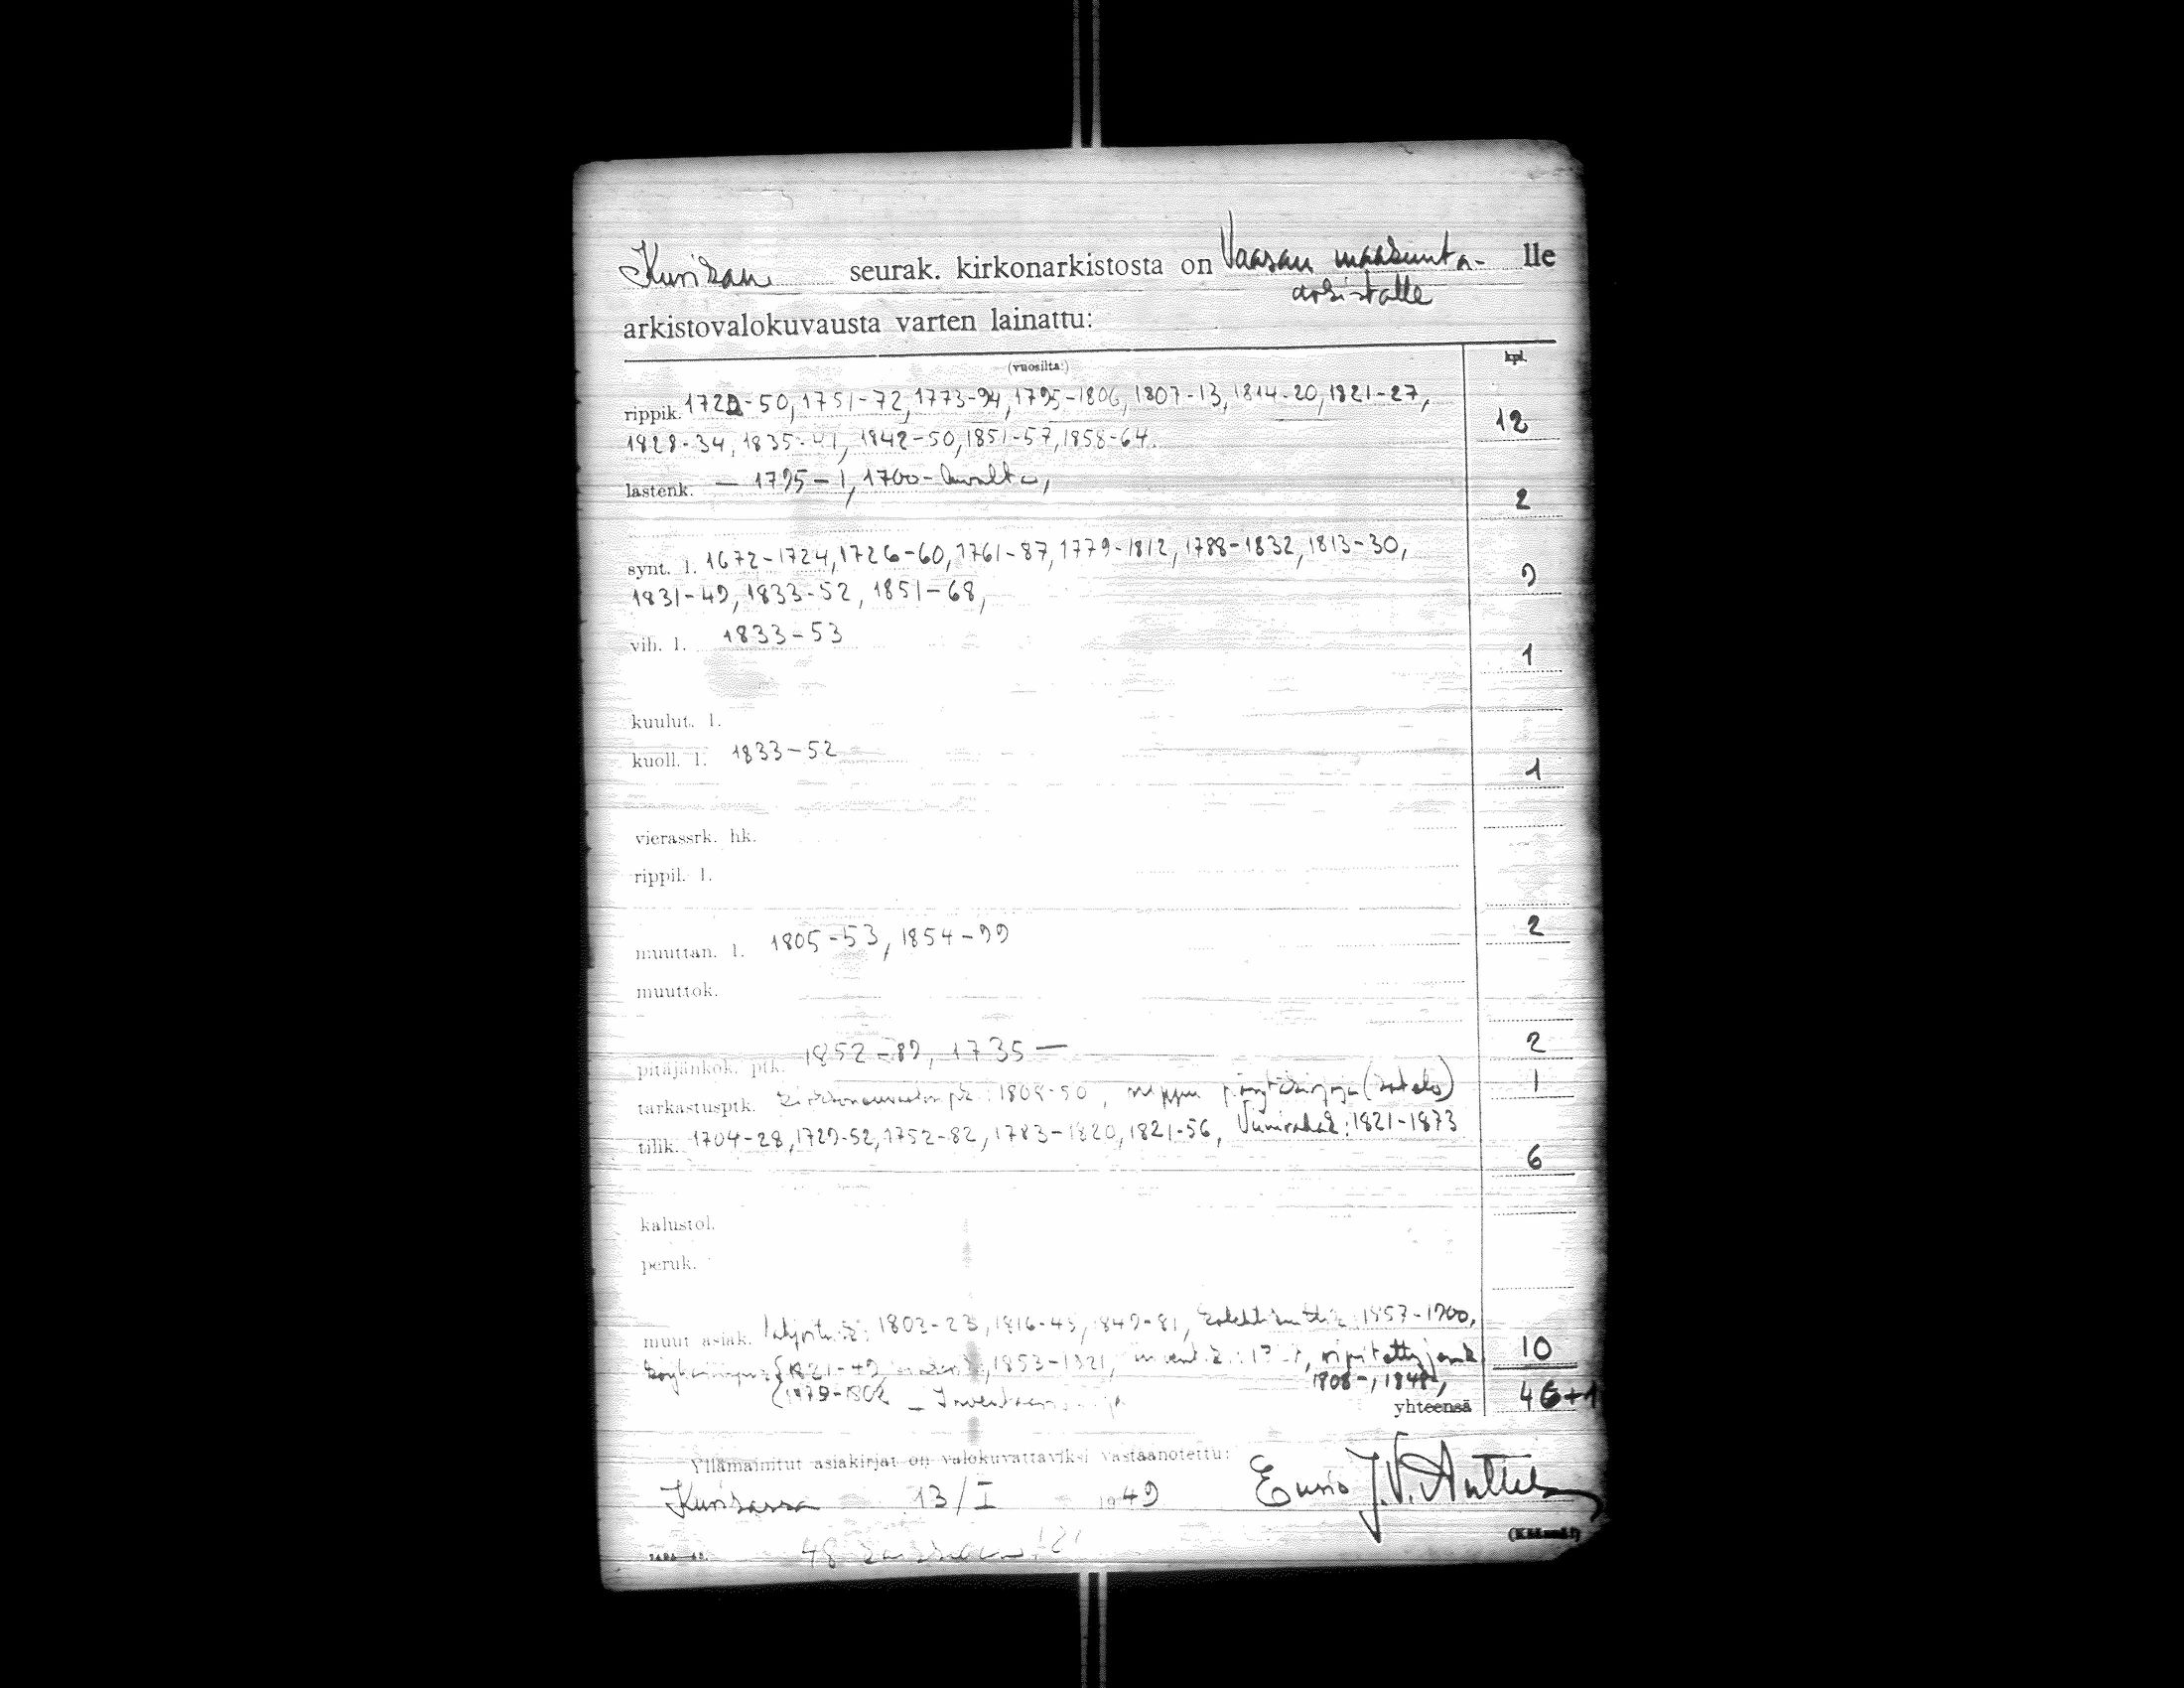 Kurikan seurak. kirkonarkistosta on Vaasan maakunta- lle
arkistolle
arkistovalokuvausta varten lainattu:
(vuosilta:) kpl.
rippik. 1722-50, 1751-72, 1773-94, 1795-1806, 1807-13, 1814-20, 1821-27,
1828-34, 1835-41, 1842-50, 1851-57, 1858-64. 12
lastenk. — 1795-1, 1700-luvulta, 2
synt. l. 1672-1724, 1726-60, 1761-87, 1779-1812, 1788-1832, 1813-30,
1831-49, 1833-52, 1851-68, 9
vih. l. 1833-53 1
kuulut. l.
kuoll. l. 1833-52 1
vierassrk. hk.
rippil. l.
muuttan. l. 1805-53, 1854-99 2
muuttok.
pitäjänkok. ptk. 1852-89, 1735— 2
tarkastusptk. nippu pöytäkirjoja 1
tilik. 1704-28, 1729-52, 1752-82, 1783-1820, 1821-56, Viinirahat: 1821-1873
6
kalustol.
peruk.
muut asiak. 1802-23, 1816-43, 1849-81,
1821-49, 1853-1921, ripitettyjen k. 10
1808-, 1848-,
yhteensä 46+1
Yllämainitut asiakirjat on valokuvattaviksi vastaanotettu:
Kurikassa 13/I 1949 Ensio J.V. Anttila
48